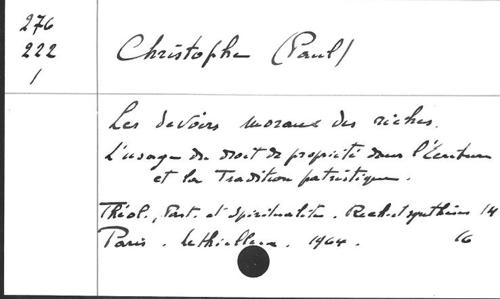 276
222
1
Christophe (Paul)
Les devoirs moraux des riches.
L'usage du droit de propriété dans l'Écriture
et la Tradition patristique.
Théol., Past. et Spiritualité. Rech. et synthèses 14
Paris. Lethielleux. 1964. 16